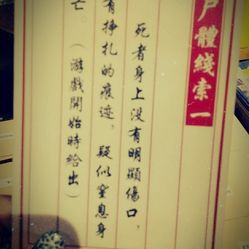 尸體綫索一
死者身上没有明顯傷口，
有掙扎的痕迹，疑似窒息身
亡（游戲開始時給出）